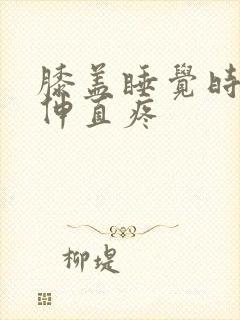 膝盖睡覺時
伸直疼
柳堤